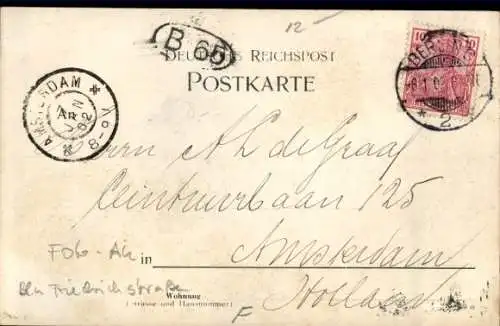 12-
B 65
DEUTSCHE REICHSPOST
POSTKARTE
10 10
BERLIN
2
AMSTERDAM
8-9 V
JAN
02
Herrn A H de Graaf
Ceintuurbaan 125
in Amsterdam
Holland
Wohnung
(Strasse und Hausnummer)
Friedrichstraße
F